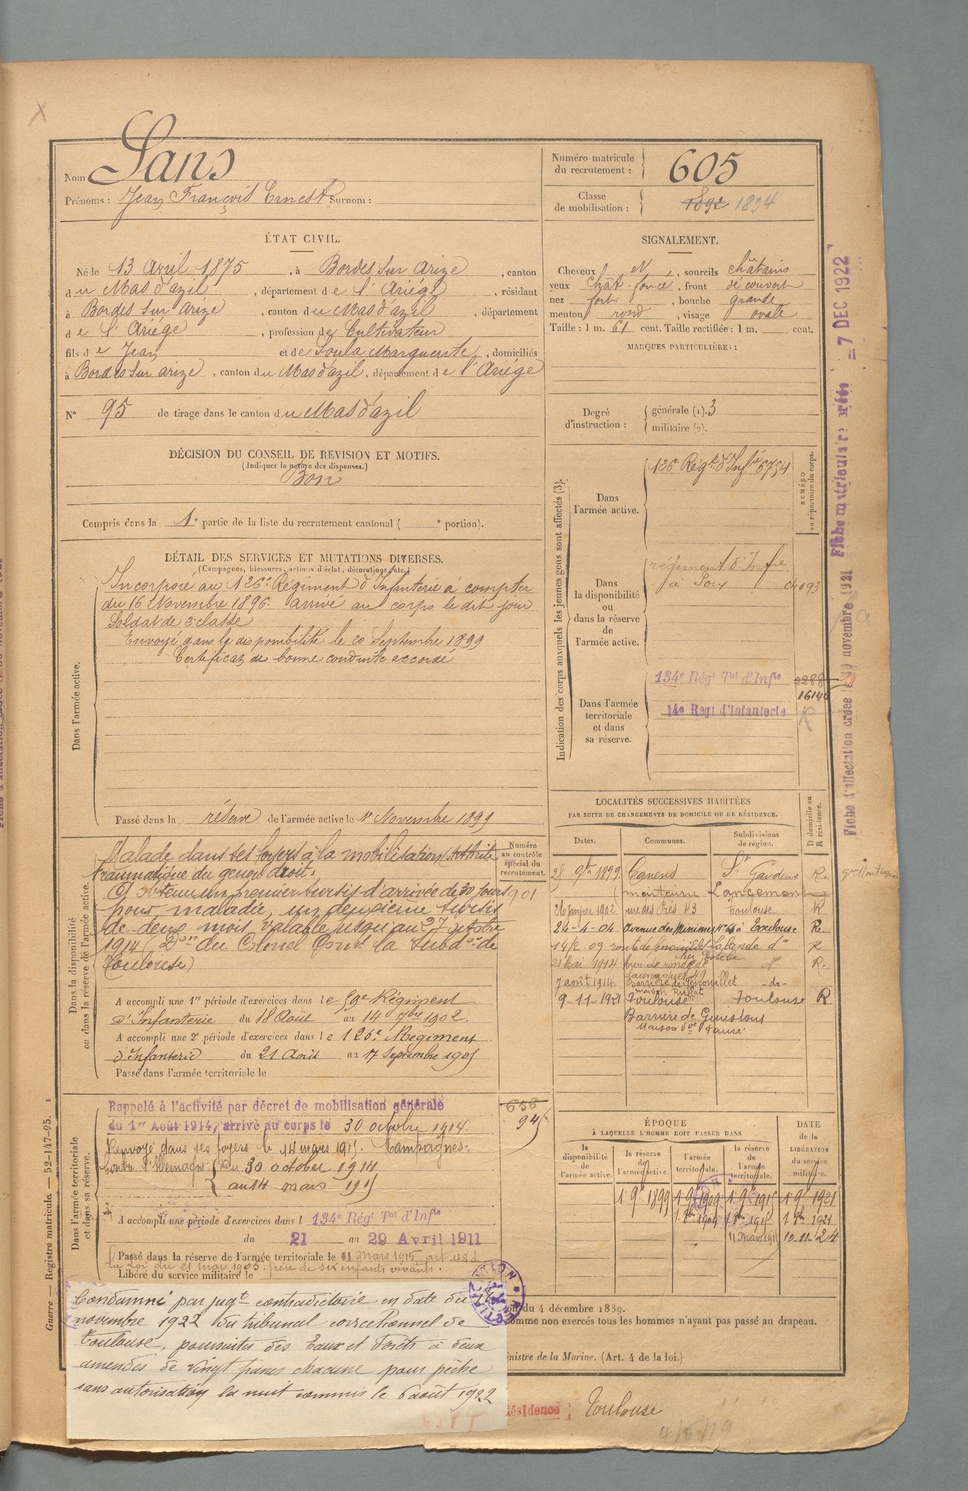 Nom Sans
Prénoms : Jean François Ernest Surnom :
Numéro matricule du recrutement : 605
Classe de mobilisation : 1894
ÉTAT CIVIL.
Né le 13 Avril 1875, à Bordes sur Arize, canton
du Mas d'azil, département de l'Ariège, résidant
à Bordes sur Arize, canton du Mas d'azil, département
de l'Ariège, profession de Cultivateur
fils de Jean et de Soula Marguerite, domiciliés
à Bordes sur arize, canton du Mas d'azil, département de l'Ariège
N° 95 de tirage dans le canton du Mas d'azil
SIGNALEMENT.
Cheveux et, sourcils châtains
yeux chât foncé, front découvert
nez fort, bouche grande
menton rond, visage ovale
Taille : 1 m. 61 cent. Taille rectifiée : 1 m. cent.
MARQUES PARTICULIÈRES :
Degré d'instruction : générale (1). 3
militaire (2).
DÉCISION DU CONSEIL DE REVISION ET MOTIFS.
(Indiquer la nature des dispenses.)
Bon
Compris dans la 1e partie de la liste du recrutement cantonal ( e portion).
DÉTAIL DES SERVICES ET MUTATIONS DIVERSES.
(Campagnes, blessures, actions d'éclat, décorations, etc.)
Dans l'armée active.
Incorporé au 126e Régiment d'Infanterie à compter
du 16 Novembre 1896. arrivé au corps le dit jour
Soldat de 2e classe
Envoyé dans la disponibilité le 20 Septembre 1899
Certificat de bonne conduite accordé
Passé dans la réserve de l'armée active le 1er Novembre 1899
Indication des corps auxquels les jeunes gens sont affectés (3).
NUMÉRO au répertoire du corps.
Dans l'armée active.
126e Régt d'Infie 6754
Dans la disponibilité ou dans la réserve de l'armée active.
régiment d'Infie
Dans l'armée territoriale et dans sa réserve.
134e Régt Tal d'Infie
14e Regt d'Infanterie
Dans la disponibilité ou dans la réserve de l'armée active.
Numéro au contrôle spécial du recrutement.
901
Malade dans ses foyers à la mobilisation (Arthrite
traumatique du genou droit.
A obtenu un premier sursis d'arrivée de 30 jours
pour maladie, un deuxième sursis
de deux mois, valable jusqu'au 27 octobre
1914 (Don du Colonel Comt la Subdon de
Toulouse)
A accompli une 1re période d'exercices dans le 59e Régiment
d'Infanterie du 18 Août au 14 7bre 1902.
A accompli une 2e période d'exercices dans le 126e Régiment
d'Infanterie du 21 Août au 17 Septembre 1905
Passé dans l'armée territoriale le
LOCALITÉS SUCCESSIVES HABITÉES
PAR SUITE DE CHANGEMENTS DE DOMICILE OU DE RÉSIDENCE.
Dates. Communes. Subdivisions de région. D domicile ou R résidence.
28 9bre 1899 Canens St Gaudens R.
26 janvier 1902 rue des Prés 43 Toulouse R
24-4-04 Avenue des Minimes à Toulouse R
14/2 09 Lalande do R
21 Mai 1914 R.
7 août 1914 -do-
9-11-1921 Toulouse Toulouse R
Dans l'armée territoriale et dans sa réserve.
Rappelé à l'activité par décret de mobilisation générale
du 1er Août 1914, arrivé au corps le 30 octobre 1914.
Renvoyé dans ses foyers le 14 mars 1915. Campagnes:
contre l'Allemagne: Du 30 octobre 1914
au 14 mars 1915
945
A accompli une période d'exercices dans l 134e Régt Tal d'Infie
du 21 au 29 Avril 1911
Passé dans la réserve de l'armée territoriale le 11 mars 1915 art. 48 de
la Loi du 21 mars 1905. père de six enfants vivants.
Libéré du service militaire le
ÉPOQUE
À LAQUELLE L'HOMME DOIT PASSER DANS
la disponibilité de l'armée active. la réserve de l'armée active. l'armée territoriale. la réserve de l'armée territoriale. DATE de la LIBÉRATION du service militaire.
1 9e 1899 1 9e 1909 1 9e 1915 1 9e 1921
11 Mars 1915 10.11.24
Condamné par jugt contradictoire en date du
novembre 1922 du tribunal correctionnel de
Toulouse, poursuites des Eaux et Forêts à deux
amendes de vingt francs chacune pour pêche
sans autorisation la nuit commis le 6 août 1922
du 4 décembre 1889.
comme non exercés tous les hommes n'ayant pas passé au drapeau.
Ministre de la Marine. (Art. 4 de la loi.)
Résidence : Toulouse
Guerre — Registre matricule. — 52-147-95.
Fiche matriculaire créée 7 DEC 1922
Fiche d'affectation créée le novembre 1921